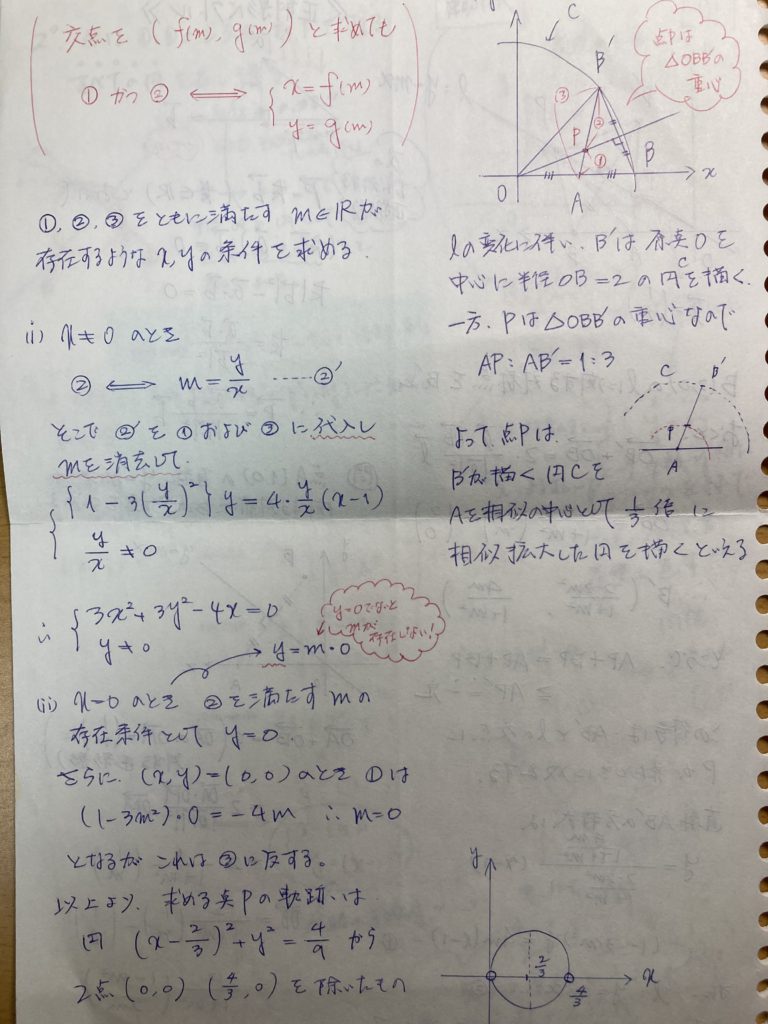 交点を (f(m), g(m)) と求めても
① かつ ② ⟺ { x = f(m)
y = g(m)
①, ②, ③ をともに満たす m∈ℝ が
存在するような x, y の条件を求める.
i) x ≠ 0 のとき
② ⟺ m = y/x ……②'
そこで ②' を ① および ③ に代入し
mを消去して.
{ {1 - 3(y/x)²} y = 4・y/x (x-1)
y/x ≠ 0
∴ { 3x² + 3y² - 4x = 0
y ≠ 0
y=0でないと
mが
存在しない!
y = m・0
(ii) x=0 のとき ② を満たす m の
存在条件として y=0.
さらに. (x, y) = (0, 0) のとき ① は
(1-3m²)・0 = -4m ∴ m=0
となるが これは ③ に反する。
以上より. 求める点Pの軌跡は
円 (x - 2/3)² + y² = 4/9 から
2点 (0, 0) (4/3, 0) を除いたもの
C
B'
点Pは
△OBB'の
重心
③
②
P
①
B
x
O
A
lの変化に伴い. B'は 原点Oを
中心に半径 OB=2 の円Cを描く.
一方. Pは△OBB'の重心なので
AP : AB' = 1 : 3
C
B'
P
A
よって. 点Pは.
B'が描く円Cを
Aを相似の中心として 1/3 倍に
相似拡大した円を描くといえる
y
2/3
4/3
x